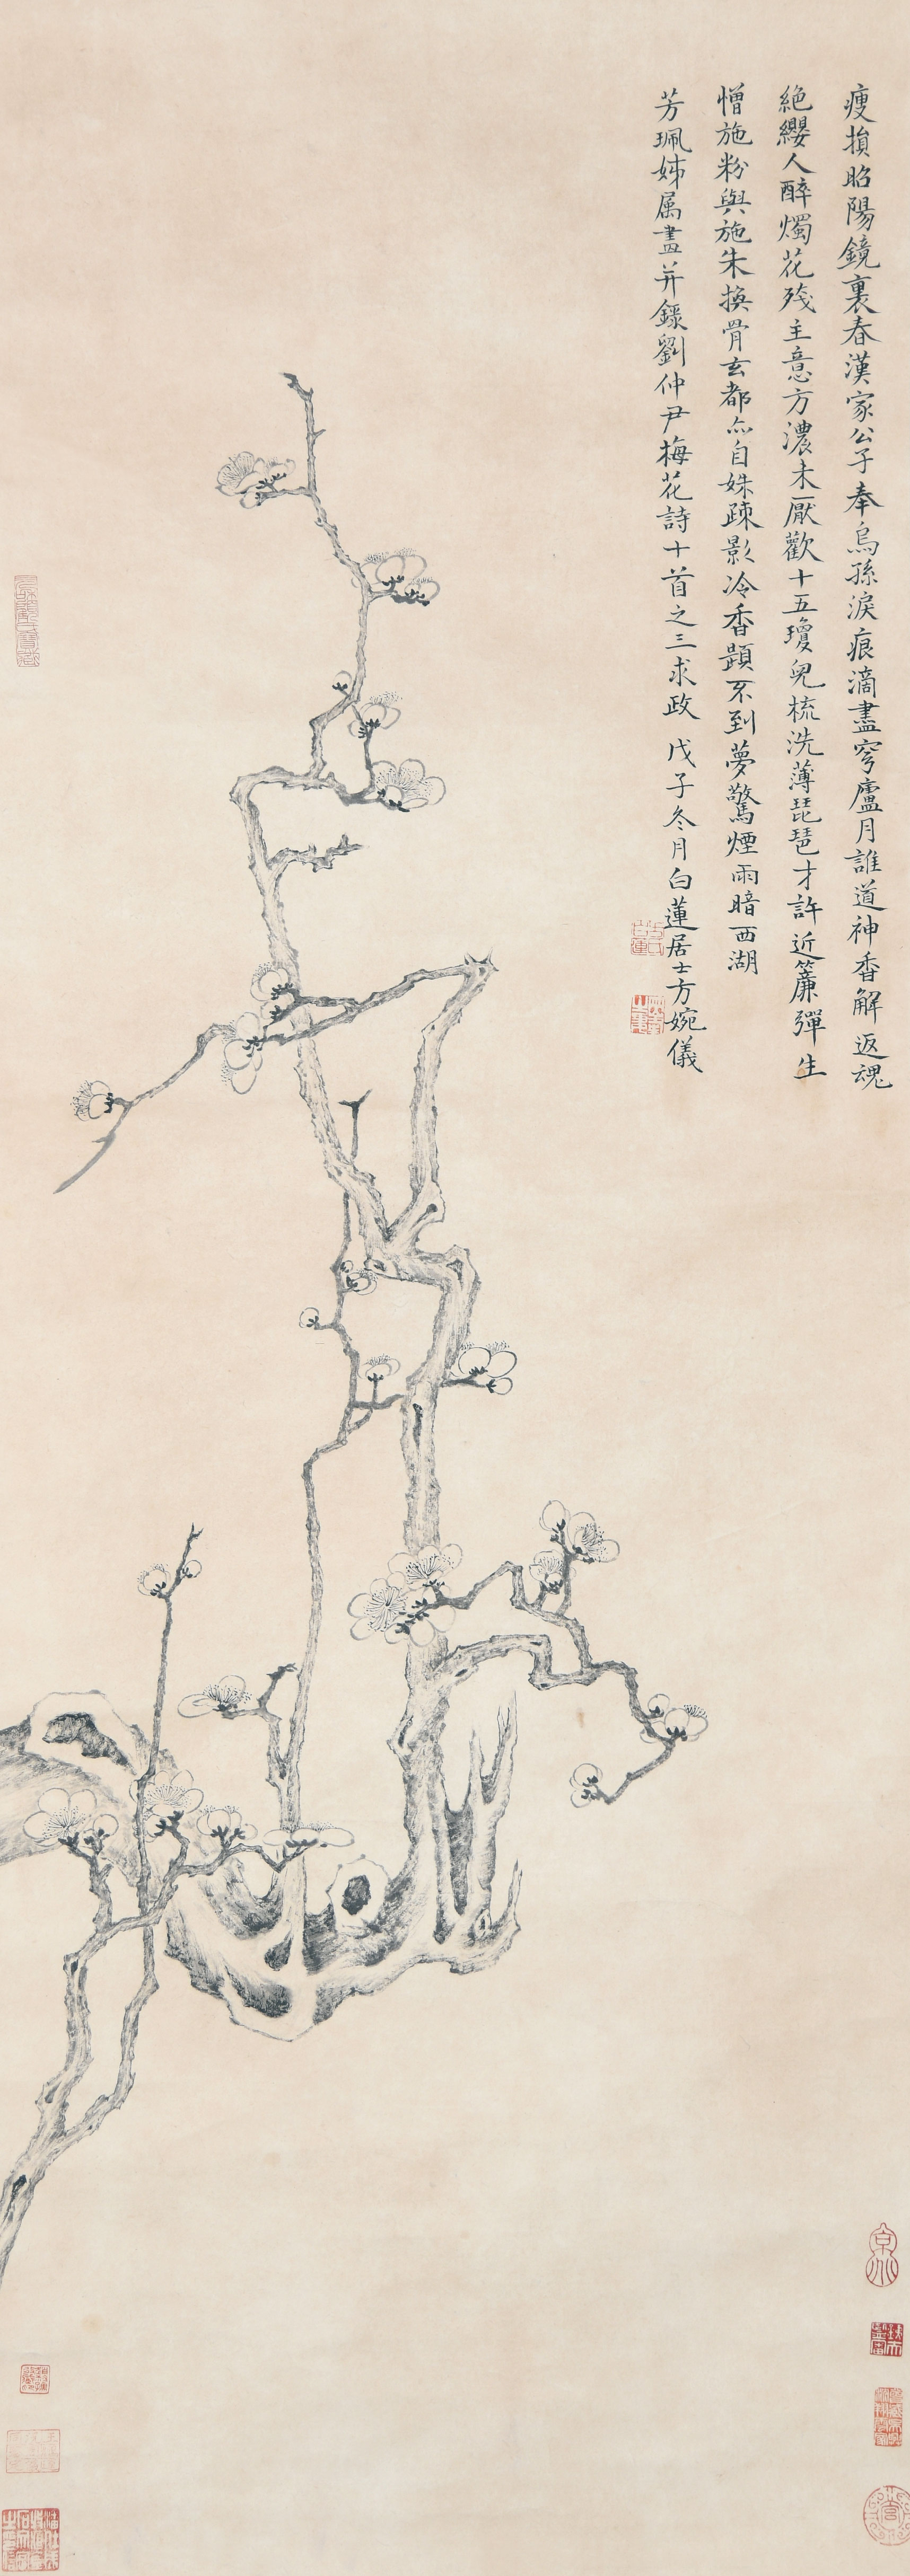 瘦損昭陽鏡裏春漢家公子奉烏孫淚痕滴盡穹廬月誰道神香解返魂
絕纓人醉燭花殘主意方濃未厭歡十五瓊兒梳洗薄琵琶才許近簾彈生
憎施粉與施朱換骨玄都亦自姝疎影冷香題不到夢驚煙雨暗西湖
芳珮姊属畫并錄劉仲尹梅花詩十首之三求政 戊子冬月白蓮居士方婉儀